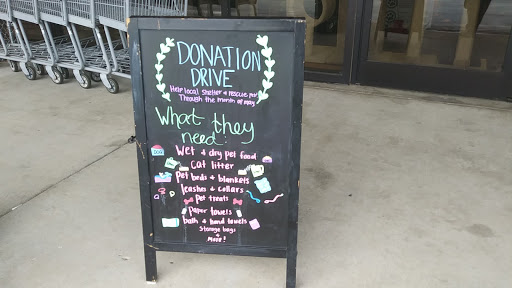 DONATION
DRIVE
Help local shelter & rescue pets
Through the month of may
What they
need:
Wet & dry pet food
Cat litter
Pet beds & blankets
leashes & collars
Pet treats
Paper towels
bath & hand towels
Storage bags
&
More!